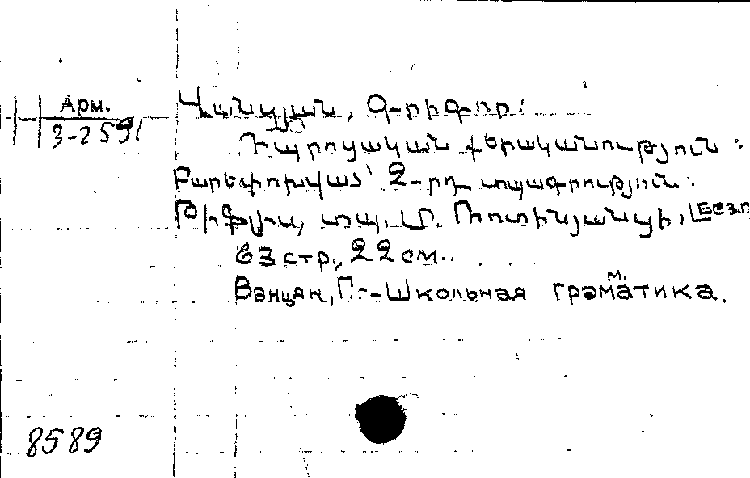 Арм.
3-2591
Վանցյան, Գրիգոր։
Դպրոցական քերականություն։
Բարեփոխված՝ 2-րդ տպագրություն։
Թիֆլիս, տպ. Մ. Ռոտինյանցի, [Без г.
63 стр., 22 см.
Ванцян, Г.-Школьная грамматика.
8589